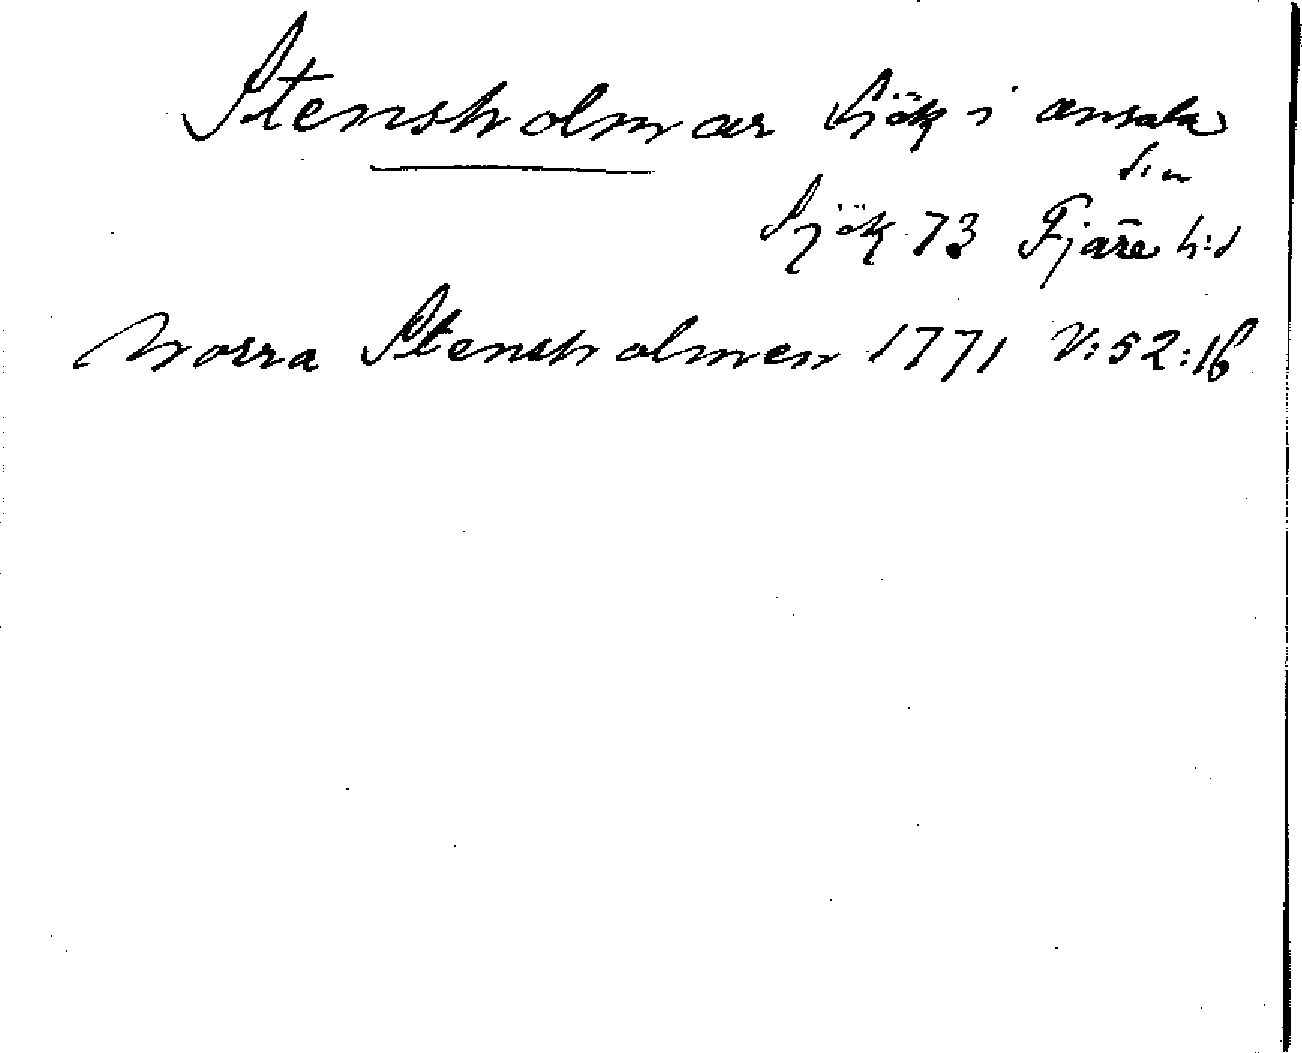 Stensholmar Sjök i Onsala
s:n
Sjök 73 Fjäre h:d
Norra Stensholmen 1771 V:52:16